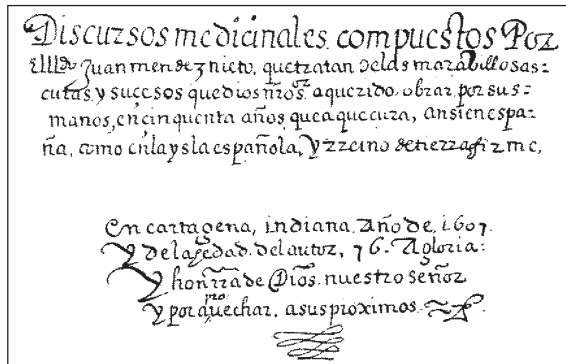 Discursos medicinales. compuestos Por
El lldo Juan mendez nieto, que tratan de las marabillosas=
curas y sucesos que dios nro sor a querido obrar por sus=
manos, en cinquenta años que a que cura, ansi en espa=
ña, como en la ysla española, Y rreino de tierra firme,
En cartagena, indiana. Año de, 1607.
Y de la hedad del autor, 76. A gloria:
Y honrra de Dios. nuestro señor
y por aprouechar, a sus proximos.